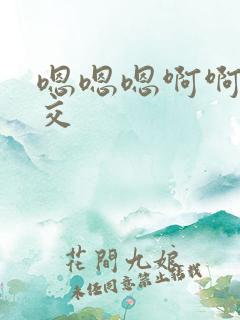 嗯嗯嗯啊啊
交
花間九娘
未经同意禁止转载